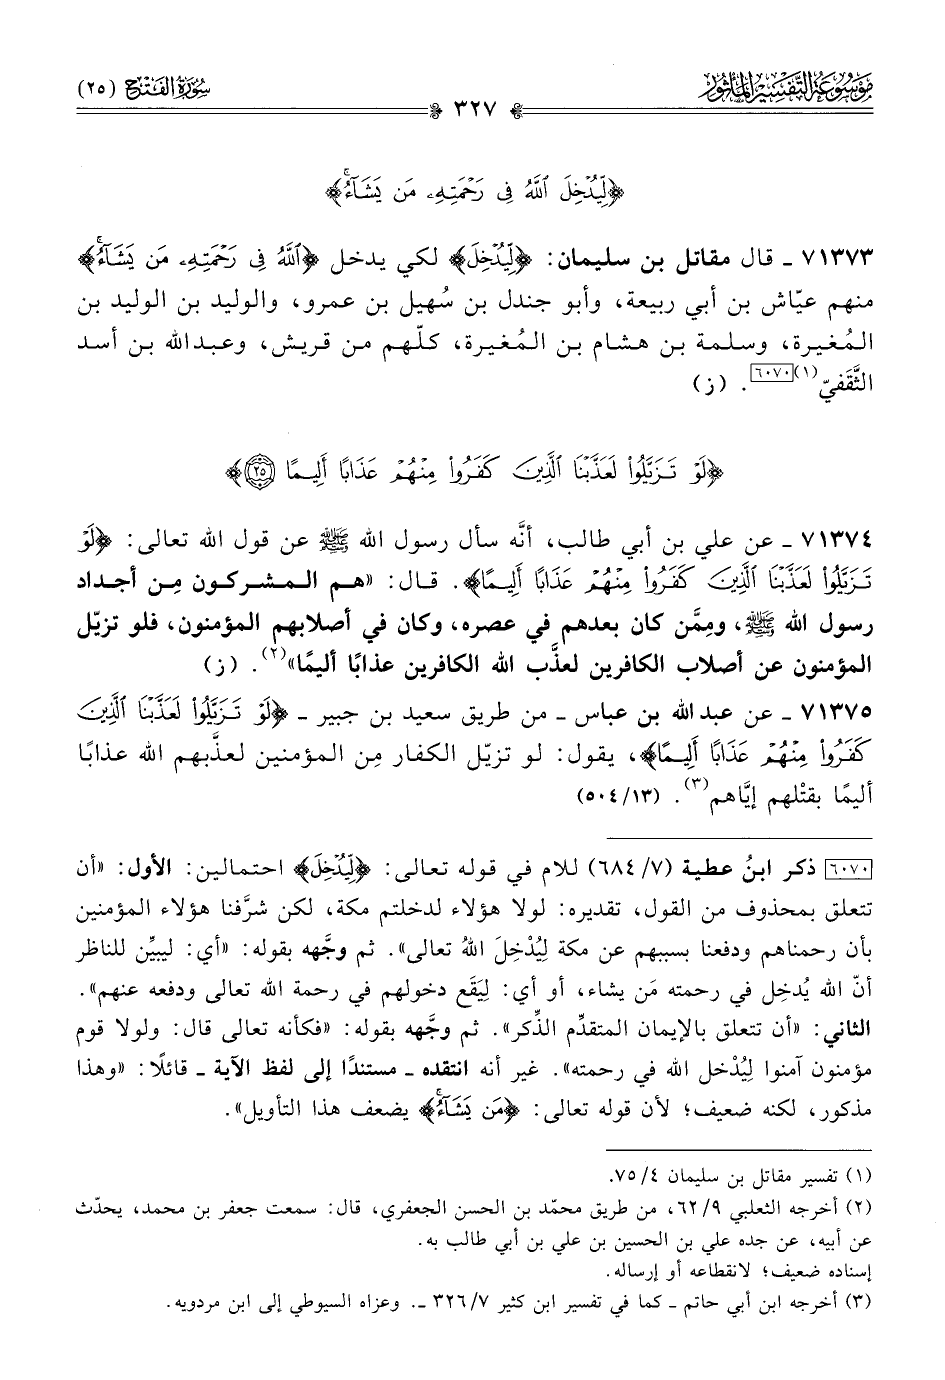 مَوْسُوعَة التَّفْسِير المَأْثُور
سُورَةُ الفَتْح (٢٥)
٣٢٧
﴿لِّيُدْخِلَ ٱللَّهُ فِى رَحْمَتِهِۦ مَن يَشَآءُۚ﴾
٧١٣٧٣ ـ قال مقاتل بن سليمان: ﴿لِّيُدْخِلَ﴾ لكي يدخل ﴿ٱللَّهُ فِى رَحْمَتِهِۦ مَن يَشَآءُۚ﴾
منهم عيّاش بن أبي ربيعة، وأبو جندل بن سُهيل بن عمرو، والوليد بن الوليد بن
المُغيرة، وسلمة بن هشام بن المُغيرة، كلّهم من قريش، وعبدالله بن أسد
الثَّقَفيّ(١)[٦٠٧٠]. (ز)
﴿لَوْ تَزَيَّلُوا۟ لَعَذَّبْنَا ٱلَّذِينَ كَفَرُوا۟ مِنْهُمْ عَذَابًا أَلِيمًا ٢٥﴾
٧١٣٧٤ ـ عن علي بن أبي طالب، أنَّه سأل رسول الله ﷺ عن قول الله تعالى: ﴿لَوْ
تَزَيَّلُوا۟ لَعَذَّبْنَا ٱلَّذِينَ كَفَرُوا۟ مِنْهُمْ عَذَابًا أَلِيمًا﴾. قال: «هم المشركون مِن أجداد
رسول الله ﷺ، ومِمَّن كان بعدهم في عصره، وكان في أصلابهم المؤمنون، فلو تزيّل
المؤمنون عن أصلاب الكافرين لعذَّب الله الكافرين عذابًا أليمًا»(٢). (ز)
٧١٣٧٥ ـ عن عبدالله بن عباس ـ من طريق سعيد بن جبير ـ ﴿لَوْ تَزَيَّلُوا۟ لَعَذَّبْنَا ٱلَّذِينَ
كَفَرُوا۟ مِنْهُمْ عَذَابًا أَلِيمًا﴾، يقول: لو تزيّل الكفار مِن المؤمنين لعذَّبهم الله عذابًا
أليمًا بقتْلهم إيَّاهم(٣). (٥٠٤/١٣)
[٦٠٧٠] ذكر ابنُ عطية (٦٨٤/٧) للام في قوله تعالى: ﴿لِّيُدْخِلَ﴾ احتمالين: الأول: «أن
تتعلق بمحذوف من القول، تقديره: لولا هؤلاء لدخلتم مكة، لكن شرَّفنا هؤلاء المؤمنين
بأن رحمناهم ودفعنا بسببهم عن مكة لِيُدْخِلَ اللهُ تعالى». ثم وجَّهه بقوله: «أي: ليبيِّن للناظر
أنّ الله يُدخِل في رحمته مَن يشاء، أو أي: لِيَقَع دخولهم في رحمة الله تعالى ودفعه عنهم».
الثاني: «أن تتعلق بالإيمان المتقدِّم الذِّكر». ثم وجَّهه بقوله: «فكأنه تعالى قال: ولولا قوم
مؤمنون آمنوا لِيُدْخل الله في رحمته». غير أنه انتقده ـ مستندًا إلى لفظ الآية ـ قائلًا: «وهذا
مذكور، لكنه ضعيف؛ لأن قوله تعالى: ﴿مَن يَشَآءُۚ﴾ يضعف هذا التأويل».
(١) تفسير مقاتل بن سليمان ٧٥/٤.
(٢) أخرجه الثعلبي ٦٢/٩، من طريق محمّد بن الحسن الجعفري، قال: سمعت جعفر بن محمد، يحدّث
عن أبيه، عن جده علي بن الحسين بن علي بن أبي طالب به.
إسناده ضعيف؛ لانقطاعه أو إرساله.
(٣) أخرجه ابن أبي حاتم ـ كما في تفسير ابن كثير ٣٢٦/٧ ـ. وعزاه السيوطي إلى ابن مردويه.